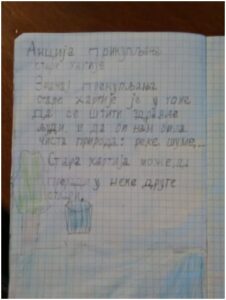 Акција прикупљања
старе хартије
Значај прикупљања
старе хартије је у томе
да се штити здравље
људи, и да би нам била
чиста природа: реке шуме...
Стара хартија може да
у неке друге